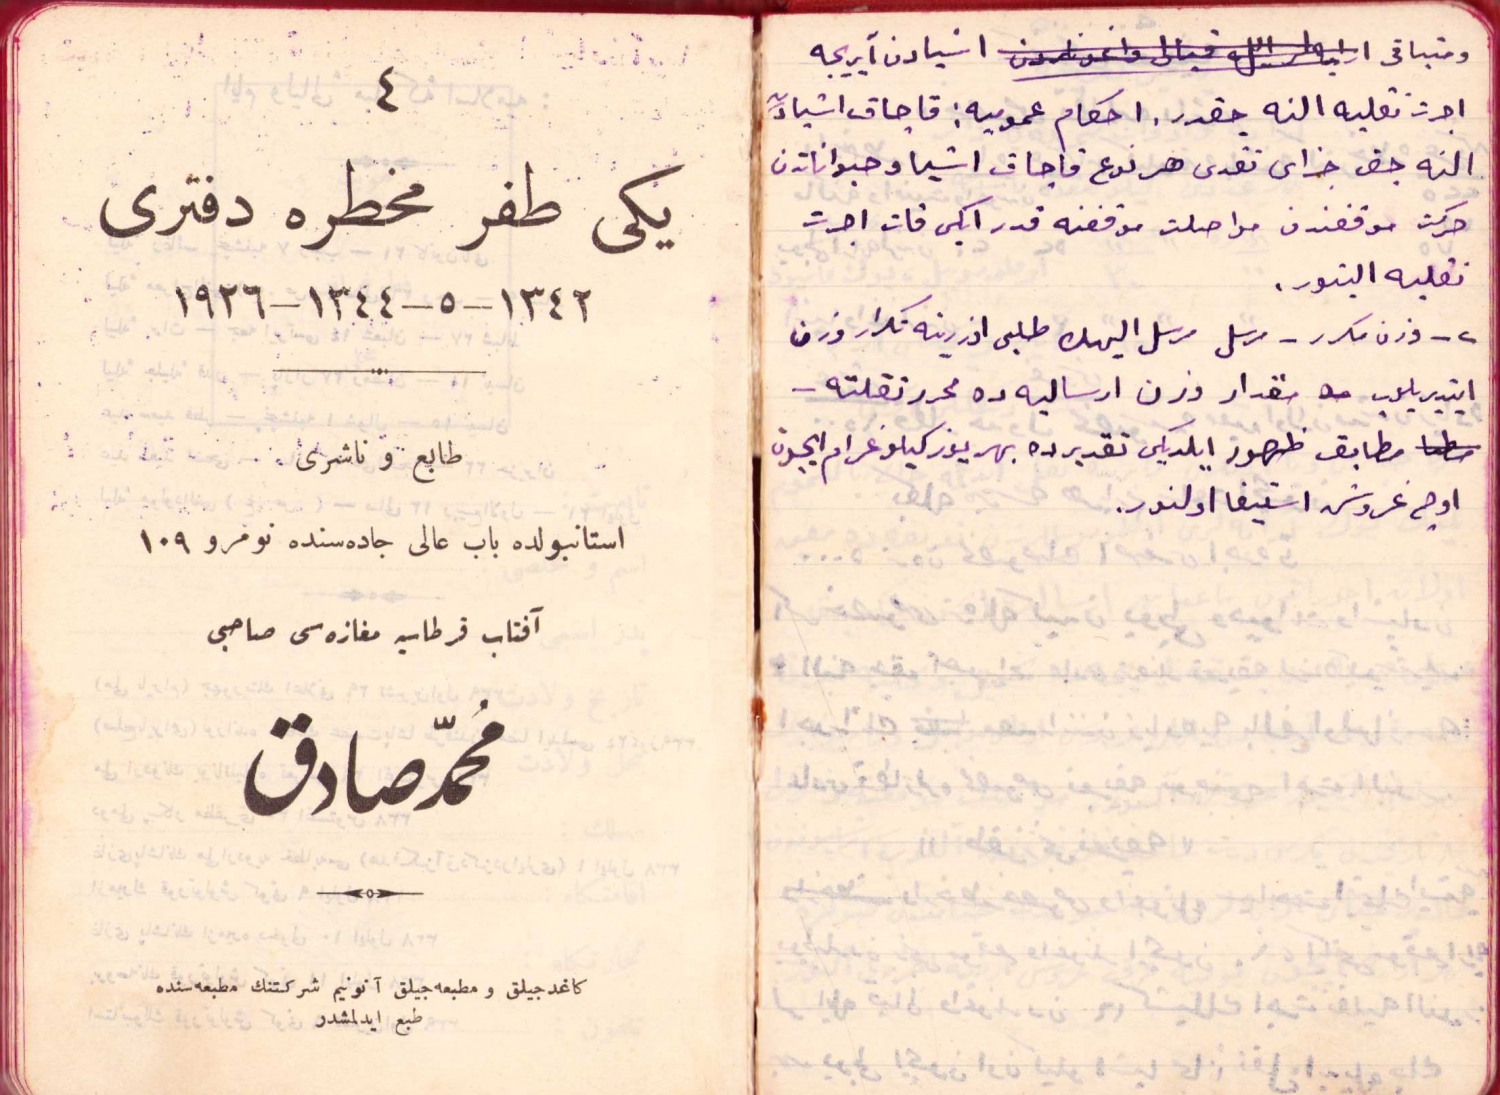 ٤
يكى ظفر مخطره دفترى
١٣٤٢–٥–١٣٤٤–١٩٢٦
طابع و ناشرى
استانبولده باب عالى جاده‌سنده نومرو ١٠٩
آفتاب قرطاسيه مغازه‌سى صاحبى
مُحمّد صادق
كاغدجيلق و مطبعه‌جيلق آنونيم شركتنك مطبعه‌سنده
طبع ايدلمشدر
ومتباقى اشيادن آيريجه
اجرت نقليه النه جقدر. احكام عموميه: قاچاق اشيادن
النه جق جزاى نقدى هر نوع قاچاق اشيا و حيواناتدن
حركت موقفندن مواصلت موقفنه قدر ايكى قات اجرت
نقليه النور.
٢ – وزن مكرر – مرسل مرسل اليهك طلبى اوزرينه تكرار وزن
ايتديريلوب ده مقدار وزن ارساليه ده محرر ثقلته –
مطابق ظهور ايلديكى تقديرده بهر يوز كيلوغرام ايچون
اوچ غروش استيفا اولنور.